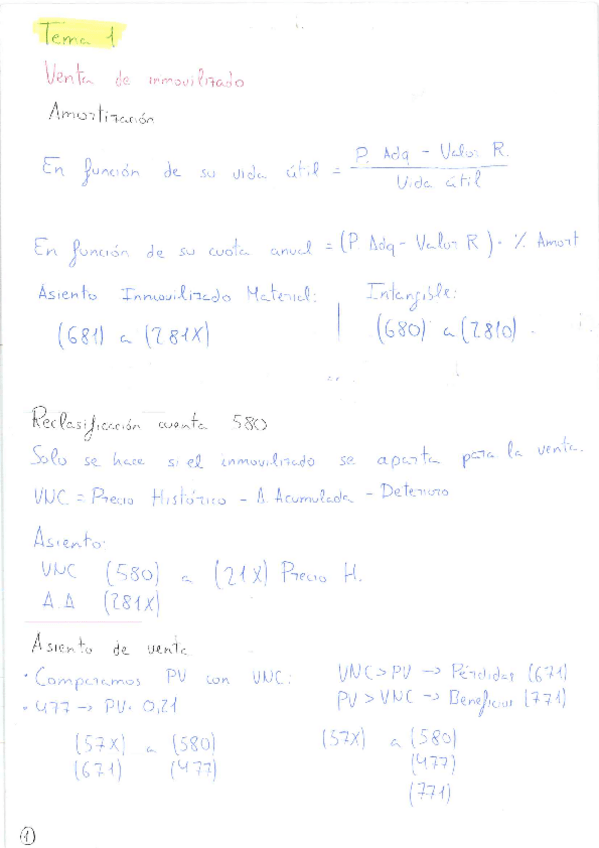 Tema 1
Venta de inmovilizado
Amortización
En función de su vida útil = P. Adq - Valor R. / Vida útil
En función de su cuota anual = (P. Adq - Valor R) · % Amort
Asiento Inmovilizado Material: | Intangible:
(681) a (281X) | (680) a (2810).
Reclasificación cuenta 580
Solo se hace si el inmovilizado se aparta para la venta.
VNC = Precio Histórico - A. Acumulada - Deterioro
Asiento:
VNC (580) a (21X) Precio H.
A.A (281X)
Asiento de venta
· Comparamos PV con VNC: VNC > PV → Pérdidas (671)
· 477 → PV · 0,21 PV > VNC → Beneficios (771)
(57X) a (580) (57X) a (580)
(671) (477) (477)
(771)
1